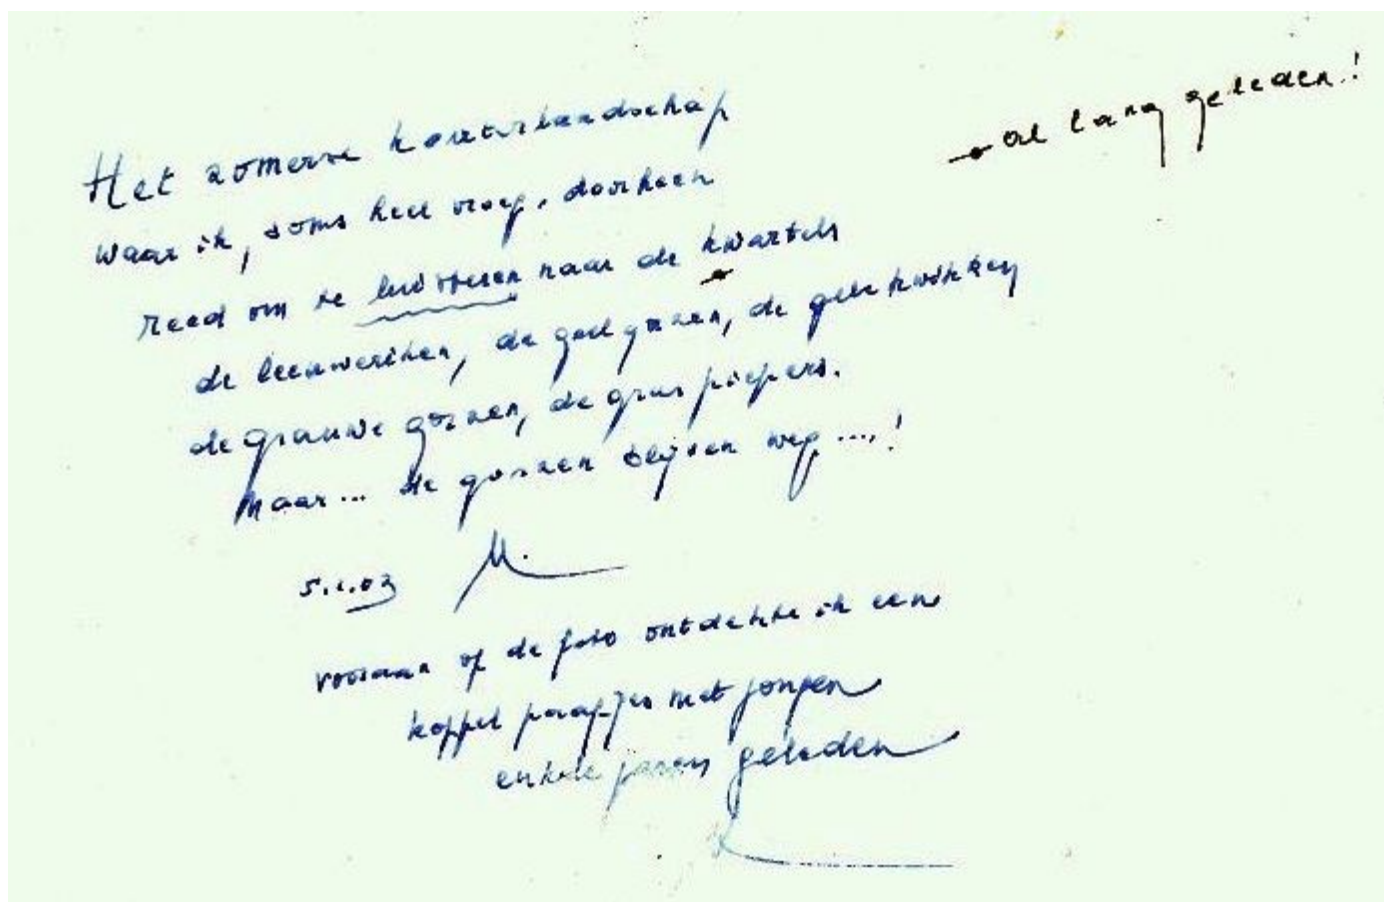 Het zomerse kouterlandschap
→ al lang geleden!
waar ik, soms heel vroeg, doorheen
reed om te luisteren naar de kwartels
de leeuweriken, de geelgorzen, de gele kwikken
de grauwe gorzen, de graspiepers.
Maar... de gorzen blijven weg....!
5.1.03 M.
vooraan op de foto ontdekte ik een
koppel paapjes met jongen
enkele jaren geleden